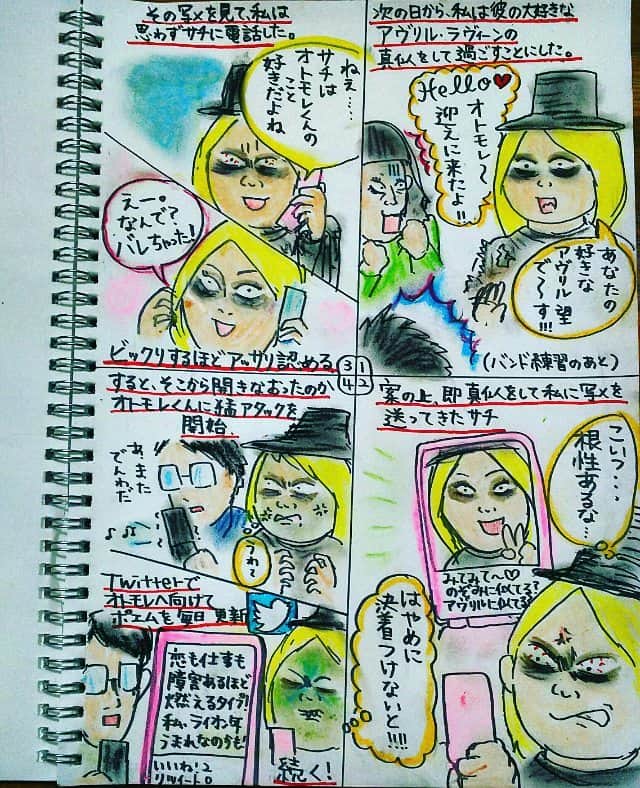 次の日から、私は彼の大好きな
アヴリル・ラヴィーンの
真似をして過ごすことにした。
Hello♥
オトモレ〜
迎えに来たよ!!
あなたの
好きな
アヴリル望
で〜す!!!
(バンド練習のあと)
1
2
案の上、即真似をして私に写メを
送ってきたサチ
こいつ・・・
根性あるな…
みてみて〜♡
のぞみに似てる?
アヴリルに似てる?
はやめに
決着
つけないと!!!!
3
その写メを見て、私は
思わずサチに電話した。
ねぇ……
サチは
オトモレくんの
こと
好きだよね
えー。
なんで?
バレちゃった!
ビックリするほどアッサリ認める
4
すると、そこから開きなおったのか
オトモレくんに猛アタックを
開始
あ、また
でんわだ
うわ〜
Twitterで
オトモレへ向けて
ポエムを毎日更新
恋も仕事も
障害あるほど
燃えるタイプ!
私、ライオン年
うまれなのかも!
いいね!2
リツイート0
続く!